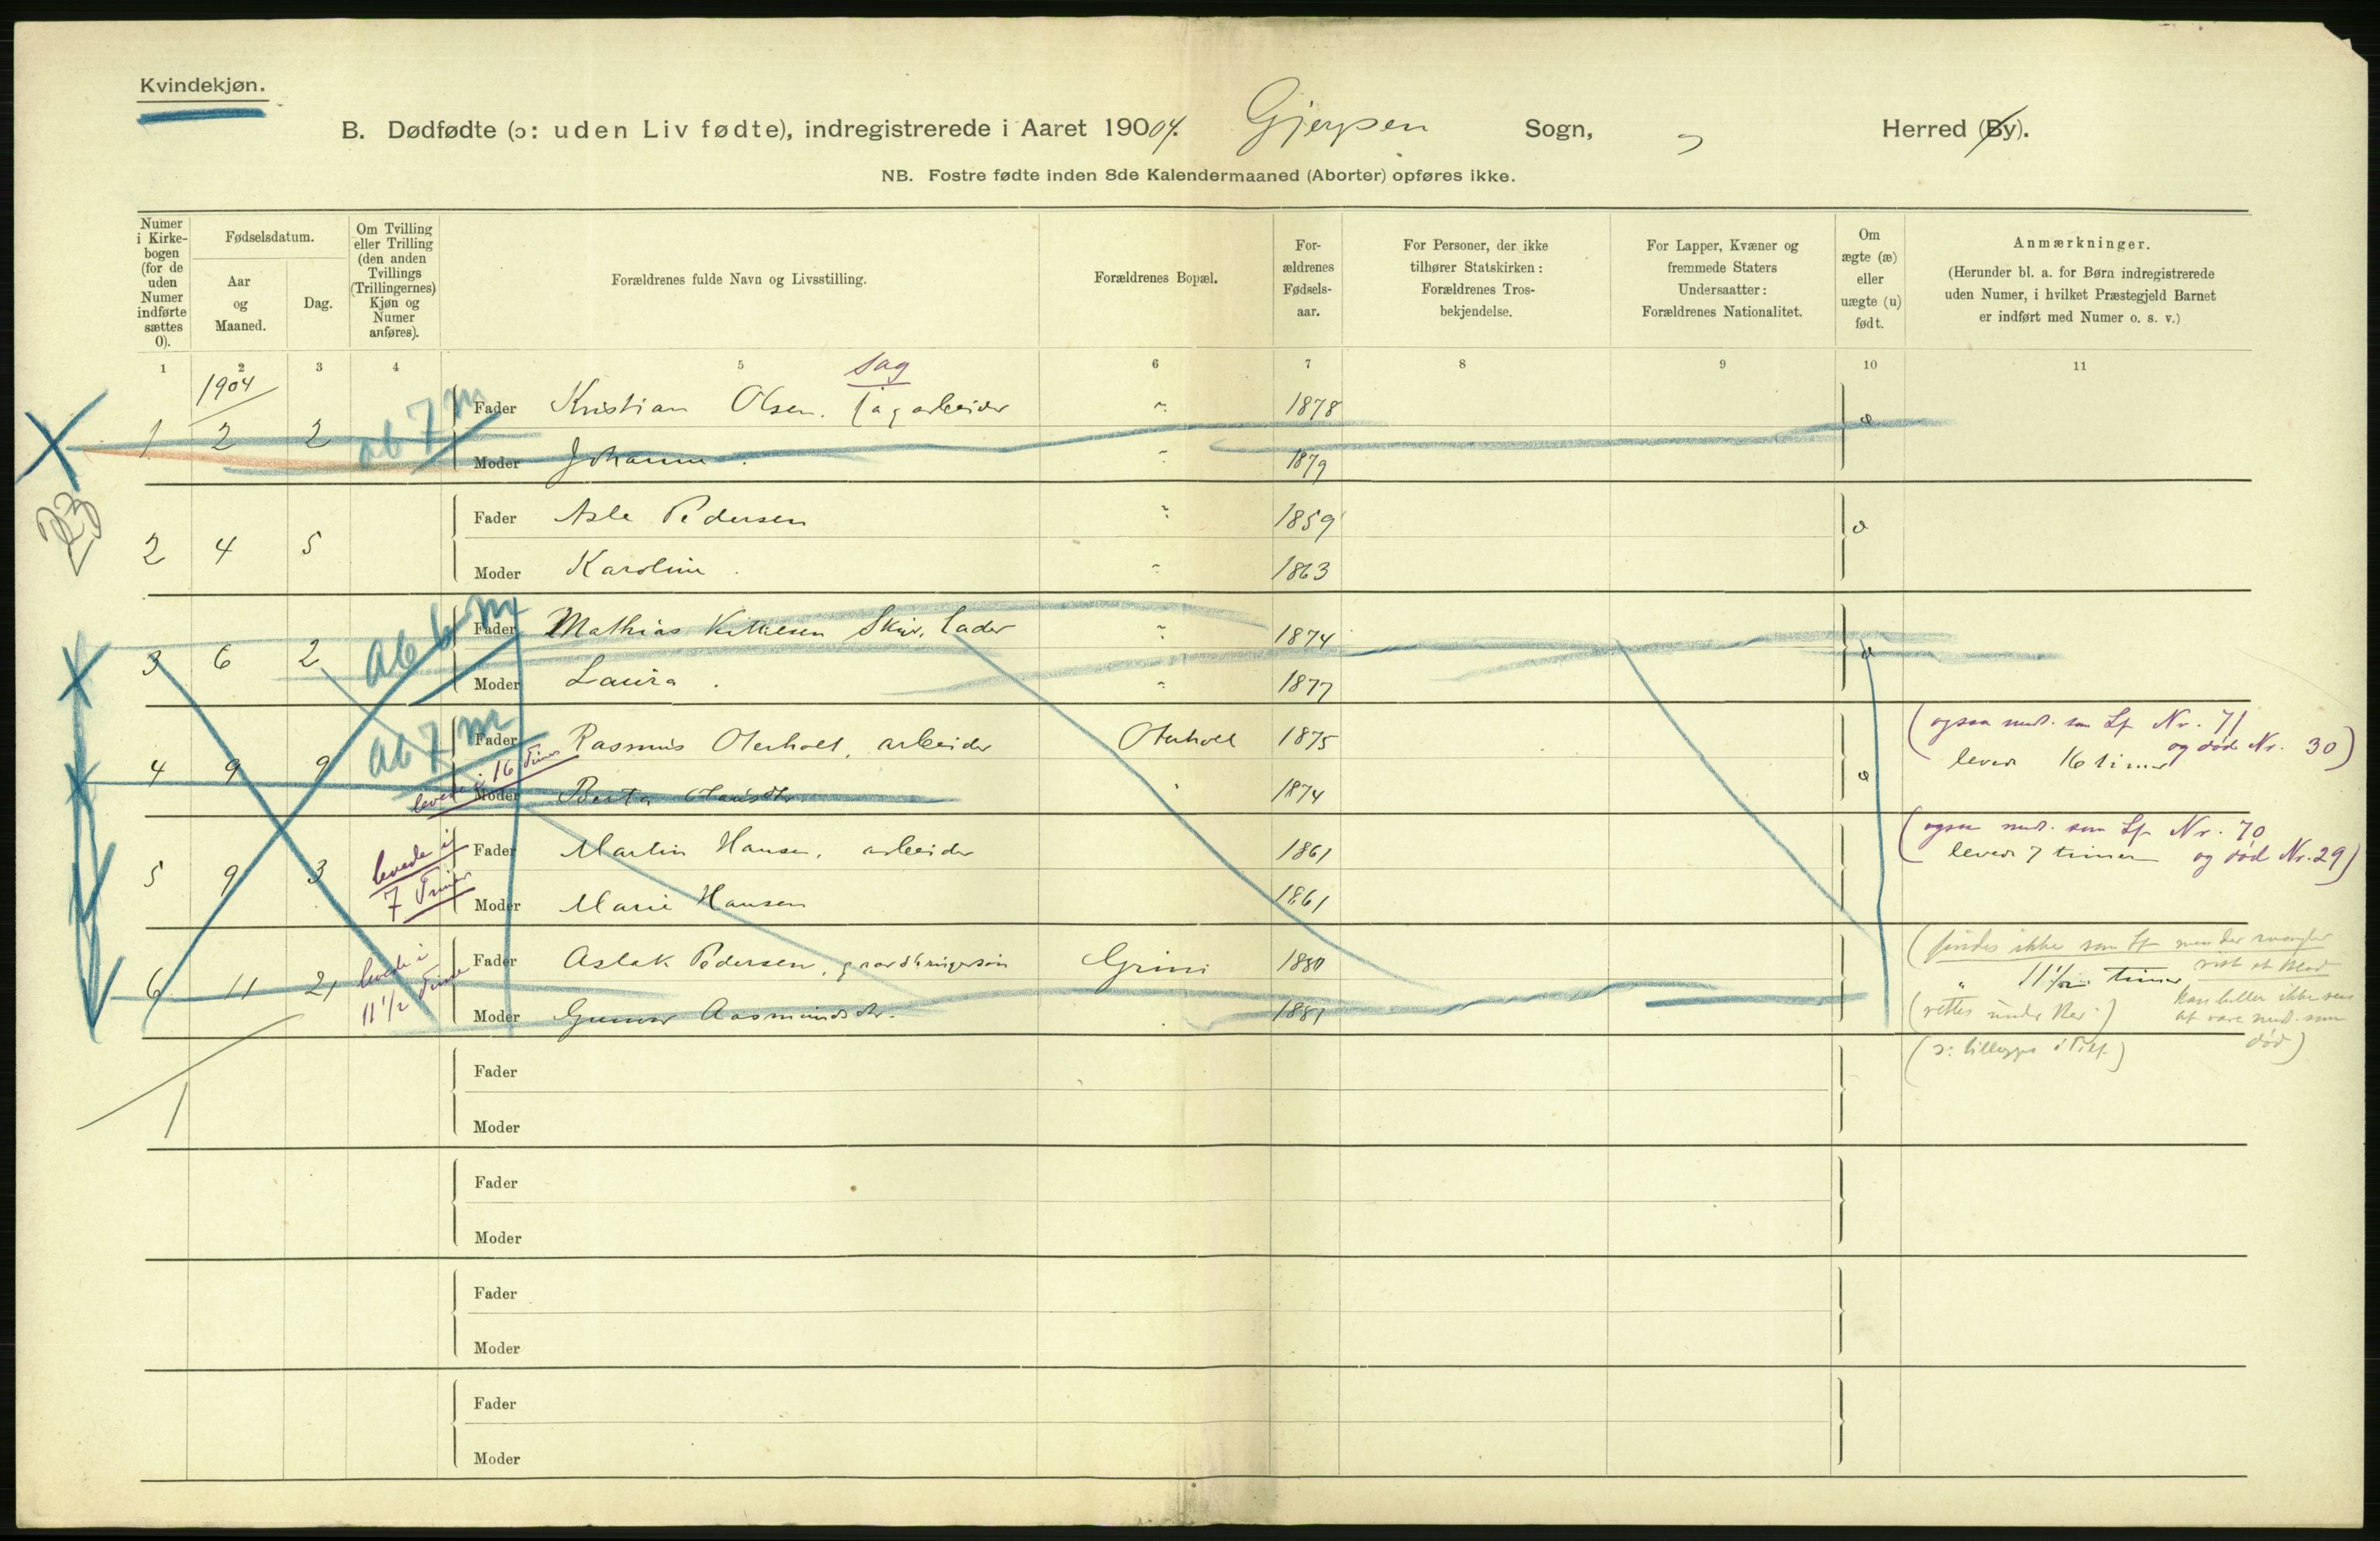 Kvindekjøn.
B. Dødfødte (ɔ: uden Liv fødte), indregistrerede i Aaret 190 04. Gjerpen Sogn, " Herred (By).
NB. Fostre fødte inden 8de Kalendermaaned (Aborter) opføres ikke.
Numer i Kirkebogen (for de uden Numer indførte sættes 0).
Fødselsdatum.
Aar og Maaned.
Dag.
Om Tvilling eller Trilling (den anden Tvillings (Trillingernes) Kjøn og Numer anføres).
Forældrenes fulde Navn og Livsstilling.
Forældrenes Bopæl.
Forældrenes Fødselsaar.
For Personer, der ikke tilhører Statskirken: Forældrenes Trosbekjendelse.
For Lapper, Kvæner og fremmede Staters Undersaatter: Forældrenes Nationalitet.
Om ægte (æ) eller uægte (u) født.
Anmærkninger.
(Herunder bl. a. for Børn indregistrerede uden Numer, i hvilket Præstegjeld Barnet er indført med Numer o. s. v.)
1 2 3 4 5 6 7 8 9 10 11
1904
sag
Fader Kristian Olsen. sagarbeider " 1878
1 2 2 ab 7 m æ
Moder Johanne. " 1879
23
Fader Asle Pedersen " 1859
2 4 5 æ
Moder Karoline. " 1863
Fader Mathias Kittilsen " 1874
3 6 2 ab 6 m æ
Moder Laura. " 1877
Fader Rasmus Oterholt, arbeider Oterholt 1875 (ogsaa med. som Lf Nr. 71 og død Nr. 30)
4 9 9 ab 7 m levede i 16 Timer æ levede 16 timer
Moder Berta " 1874
Fader Martin Hansen, arbeider 1861 (ogsaa med. som Lf Nr. 70 og død Nr. 29)
5 9 3 levede i 7 Timer levede 7 timer
Moder Marie Hansen 1861
Fader Aslak Pedersen, gaardbrugersøn Grini 1880 (findes ikke som Lf men der mangler vist et Blad
6 11 21 levede i 11 1/2 Time " 11 1/2 timer
Moder Gunvor Aasmundsdtr. 1881 Kan heller ikke sees at være med. som død)
1
Fader
Moder
Fader
Moder
Fader
Moder
Fader
Moder